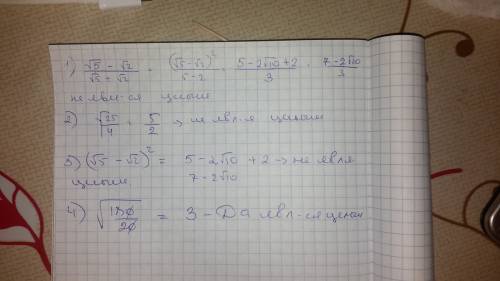 1) (√5 − √2)/(√5 + √2) = (√5−√2)²/(5−2) = (5−2√10+2)/3 = (7−2√10)/3
не явл-ся целым
2) √25/4 = 5/2 → не явл-я целым
3) (√5 − √2)² = 5−2√10 + 2 → не явля
целым 7−2√10
4) √(180/20) = 3 – Да явл-ся целым